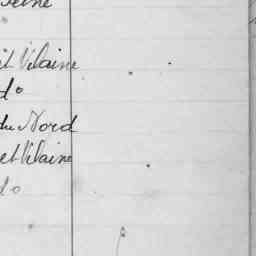 eine
et Vilaine
do
du Nord
et Vilaine
do